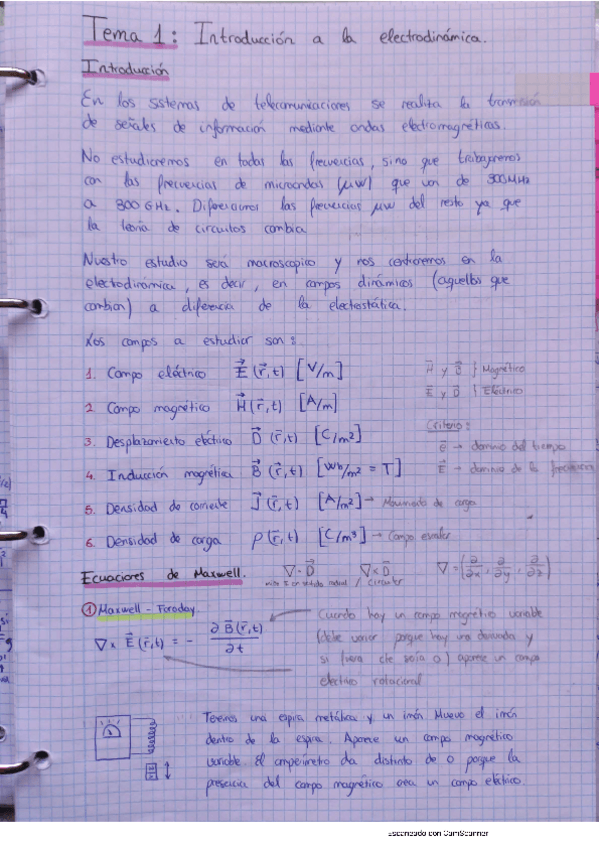 Tema 1: Introducción a la electrodinámica.
Introducción
En los sistemas de telecomunicaciones se realiza la transmisión
de señales de información mediante ondas electromagnéticas.
No estudiaremos en todas las frecuencias, sino que trabajaremos
con las frecuencias de microondas (μW) que van de 300MHz
a 300 GHz. Diferenciamos las frecuencias μW del resto ya que
la teoría de circuitos cambia
Nuestro estudio será macroscopico y nos centraremos en la
electrodinámica, es decir, en campos dinámicos (aquellos que
cambian) a diferencia de la electrostática.
Los campos a estudiar son:
1. Campo eléctrico E⃗(r⃗,t) [V/m]
H⃗ y B⃗ } Magnético
E⃗ y D⃗ } Eléctrico
2 Campo magnético H⃗(r⃗,t) [A/m]
Criterio:
3. Desplazamiento eléctrico D⃗(r⃗,t) [C/m²]
e⃗ → dominio del tiempo
4. Inducción magnética B⃗(r⃗,t) [Wb/m² = T]
E⃗ → dominio de la frecuencia
5. Densidad de corriente J⃗(r⃗,t) [A/m²] → Movimiento de carga
6. Densidad de carga ρ(r⃗,t) [C/m³] → Campo escalar
Ecuaciones de Maxwell. ∇·D⃗ ∇×D⃗ ∇ = (∂/∂x, ∂/∂y, ∂/∂z)
/ circular
① Maxwell - Faraday
∇× E⃗(r⃗,t) = - ∂B⃗(r⃗,t)/∂t
Cuando hay un campo magnético variable
(debe variar porque hay una derivada y
si fuera cte sería 0) aparece un campo
electrico rotacional
Tenemos una espira metálica y un imán Muevo el imán
dentro de la espira. Aparece un campo magnético
variable. El amperímetro da distinto de 0 porque la
presencia del campo magnético crea un campo eléctrico.
Escaneado con CamScanner